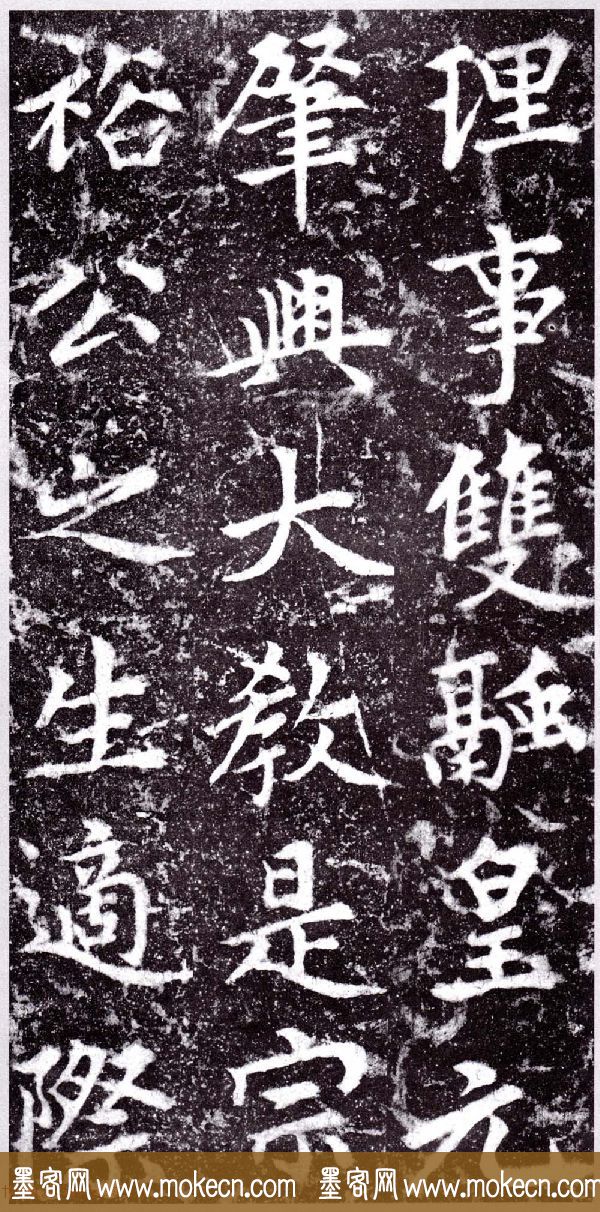 理事雙融皇元
肇興大教是宗
裕公之生適際
墨客网 www.mokecn.com 墨客网 www.mokecn.com